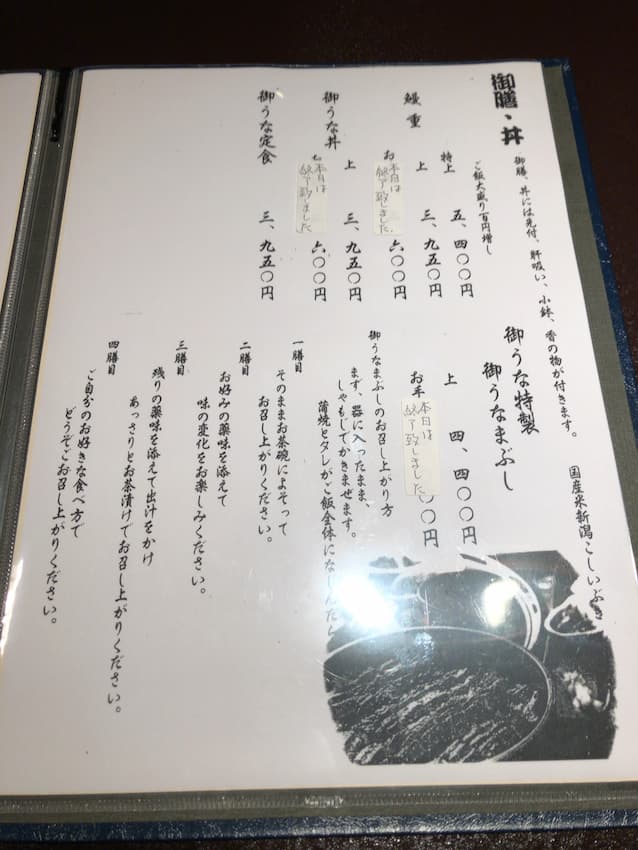 御膳、丼
御膳、丼には先付、肝吸い、小鉢、香の物が付きます。
国産米新潟こしいぶき
ご飯大盛り百円増し
鰻重
特上 五、四〇〇円
上 三、九五〇円
お 六〇〇円
本日は
終了致しました
御うな丼
上 三、九五〇円
六〇〇円
本日は
終了致しました
御うな定食
三、九五〇円
御うな特製
御うなまぶし
上 四、四〇〇円
お手 〇〇円
本日は
終了致しました
御うなまぶしのお召し上がり方
まず、器に入ったまま、
しゃもじでかきまぜます。
蒲焼とタレがご飯全体になじんだら
一膳目
そのままお茶碗によそって
お召し上がりください。
二膳目
お好みの薬味を添えて
味の変化をお楽しみください。
三膳目
残りの薬味を添えて出汁をかけ
あっさりとお茶漬けでお召し上がりください。
四膳目
ご自分のお好きな食べ方で
どうぞごお召し上がりください。